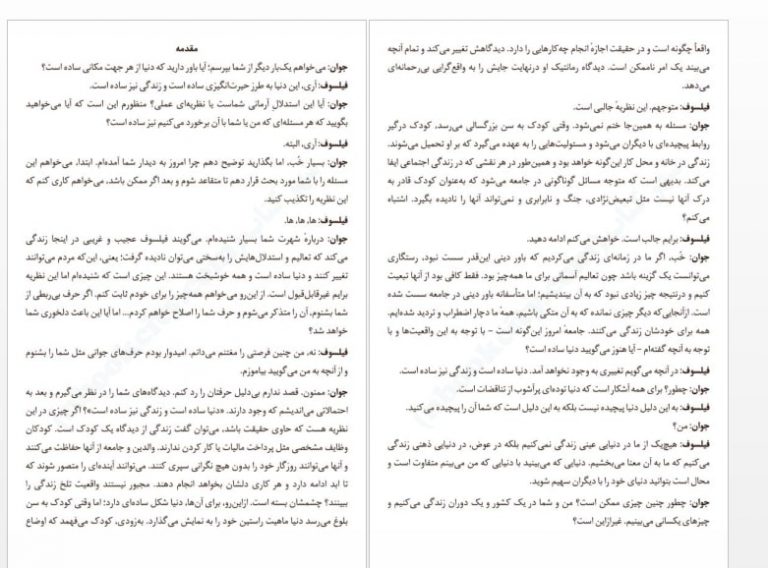 مقدمه
جوان: می‌خواهم یک‌بار دیگر از شما بپرسم؛ آیا باور دارید که دنیا از هر جهت مکانی ساده است؟
فیلسوف: آری، این دنیا به طرز حیرت‌انگیزی ساده است و زندگی نیز ساده است.
جوان: آیا این استدلال آرمانی شماست یا نظریه‌ای عملی؟ منظورم این است که آیا می‌خواهید
بگویید که هر مسئله‌ای که من یا شما با آن برخورد می‌کنیم نیز ساده است؟
فیلسوف: آری، البته.
جوان: بسیار خُب، اما بگذارید توضیح دهم چرا امروز به دیدار شما آمده‌ام. ابتدا، می‌خواهم این
مسئله را با شما مورد بحث قرار دهم تا متقاعد شوم و بعد اگر ممکن باشد، می‌خواهم کاری کنم که
این نظریه را تکذیب کنید.
فیلسوف: ها، ها، ها.
جوان: دربارهٔ شهرت شما بسیار شنیده‌ام. می‌گویند فیلسوف عجیب و غریبی در اینجا زندگی
می‌کند که تعالیم و استدلال‌هایش را به‌سختی می‌توان نادیده گرفت؛ یعنی، این‌که مردم می‌توانند
تغییر کنند و دنیا ساده است و همه خوشبخت هستند. این چیزی است که شنیده‌ام اما این نظریه
برایم غیرقابل‌قبول است. از این‌رو می‌خواهم همه‌چیز را برای خودم ثابت کنم. اگر حرف بی‌ربطی از
شما بشنوم، آن را متذکر می‌شوم و حرف شما را اصلاح خواهم کرد... اما آیا این باعث دلخوری شما
خواهد شد؟
فیلسوف: نه، من چنین فرصتی را مغتنم می‌دانم. امیدوار بودم حرف‌های جوانی مثل شما را بشنوم
و از آنچه به من می‌گویید بیاموزم.
جوان: ممنون. قصد ندارم بی‌دلیل حرفتان را رد کنم. دیدگاه‌های شما را در نظر می‌گیرم و بعد به
احتمالاتی می‌اندیشم که وجود دارند. «دنیا ساده است و زندگی نیز ساده است»؟ اگر چیزی در این
نظریه هست که حاوی حقیقت باشد، می‌توان گفت زندگی از دیدگاه یک کودک است. کودکان
وظایف مشخصی مثل پرداخت مالیات یا کار کردن ندارند. والدین و جامعه از آنها حفاظت می‌کنند
و آنها می‌توانند روزگار خود را بدون هیچ نگرانی سپری کنند. می‌توانند آینده‌ای را متصور شوند که
تا ابد ادامه دارد و هر کاری دلشان بخواهد انجام دهند. مجبور نیستند واقعیت تلخ زندگی را
ببینند؟ چشمشان بسته است. ازاین‌رو، برای آن‌ها، دنیا شکل ساده‌ای دارد؛ اما وقتی کودک به سن
بلوغ می‌رسد دنیا ماهیت راستین خود را به نمایش می‌گذارد. به‌زودی، کودک می‌فهمد که اوضاع
واقعاً چگونه است و در حقیقت اجازهٔ انجام چه‌کارهایی را دارد. دیدگاهش تغییر می‌کند و تمام آنچه
می‌بیند یک امر ناممکن است. دیدگاه رمانتیک او درنهایت جایش را به واقع‌گرایی بی‌رحمانه‌ای
می‌دهد.
فیلسوف: متوجهم. این نظریهٔ جالبی است.
جوان: مسئله به همین‌جا ختم نمی‌شود. وقتی کودک به سن بزرگسالی می‌رسد، کودک درگیر
روابط پیچیده‌ای با دیگران می‌شود و مسئولیت‌هایی را به عهده می‌گیرد که بر او تحمیل می‌شوند.
زندگی در خانه و محل کار این‌گونه خواهد بود و همین‌طور در هر نقشی که در زندگی اجتماعی ایفا
می‌کند. بدیهی است که متوجه مسائل گوناگونی در جامعه می‌شود که به‌عنوان کودک قادر به
درک آنها نیست مثل تبعیض‌نژادی، جنگ و نابرابری و نمی‌تواند آنها را نادیده بگیرد. اشتباه
می‌کنم؟
فیلسوف: برایم جالب است. خواهش می‌کنم ادامه دهید.
جوان: خُب، اگر ما در زمانه‌ای زندگی می‌کردیم که باور دینی این‌قدر سست نبود، رستگاری
می‌توانست یک گزینه باشد چون تعالیم آسمانی برای ما همه‌چیز بود. فقط کافی بود از آنها تبعیت
کنیم و درنتیجه چیز زیادی نبود که به آن بیندیشیم؛ اما متأسفانه باور دینی در جامعه سست شده
است. ازآنجایی‌که دیگر چیزی نمانده که به آن متکی باشیم، همهٔ ما دچار اضطراب و تردید شده‌ایم.
همه برای خودشان زندگی می‌کنند. جامعهٔ امروز این‌گونه است – با توجه به این واقعیت‌ها و با
توجه به آنچه گفته‌ام – آیا هنوز می‌گویید دنیا ساده است؟
فیلسوف: در آنچه می‌گویم تغییری به وجود نخواهد آمد. دنیا ساده است و زندگی نیز ساده است.
جوان: چطور؟ برای همه آشکار است که دنیا توده‌ای پرآشوب از تناقضات است.
فیلسوف: به این دلیل دنیا پیچیده نیست بلکه به این دلیل است که شما آن را پیچیده می‌کنید.
جوان: من؟
فیلسوف: هیچ‌یک از ما در دنیایی عینی زندگی نمی‌کنیم بلکه در عوض، در دنیایی ذهنی زندگی
می‌کنیم که ما به آن معنا می‌بخشیم. دنیایی که می‌بینید با دنیایی که من می‌بینم متفاوت است و
محال است بتوانید دنیای خود را با دیگران سهیم شوید.
جوان: چطور چنین چیزی ممکن است؟ من و شما در یک کشور و یک دوران زندگی می‌کنیم و
چیزهای یکسانی می‌بینیم. غیرازاین است؟